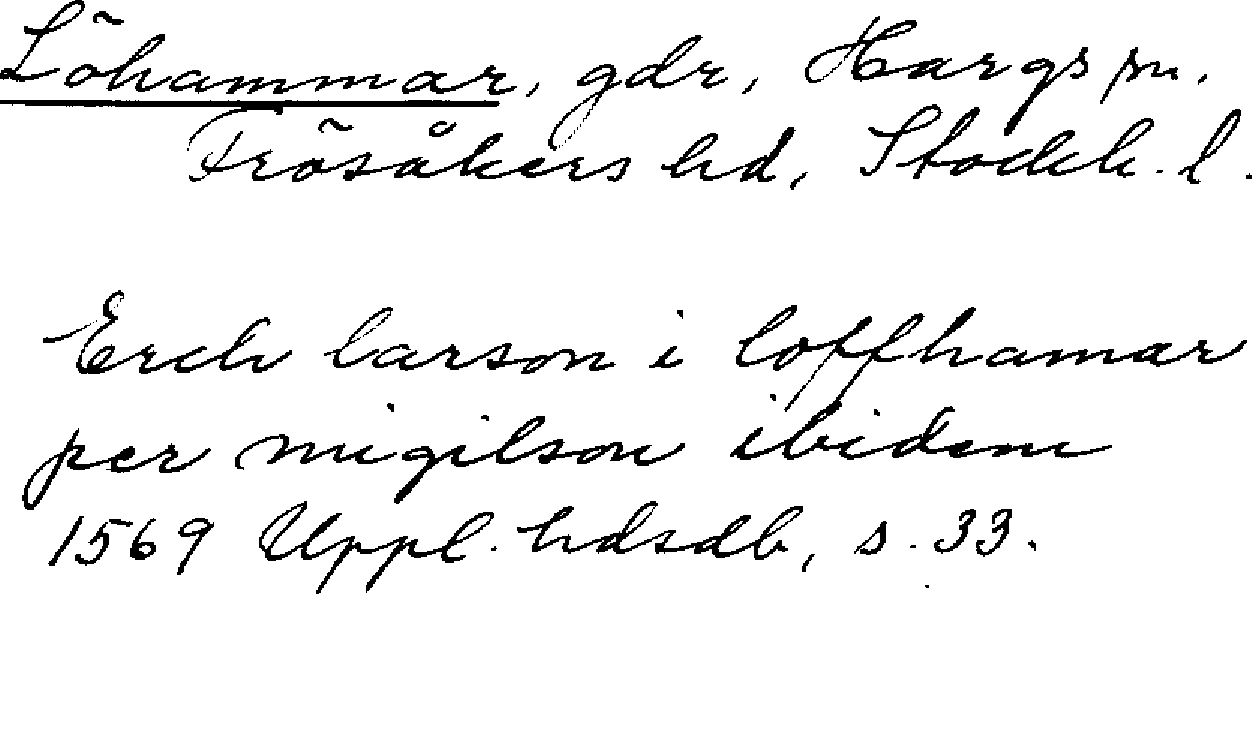 Löhammar, gdr, Hargs sn,
Frösåkers hd, Stockh. l.
Erch larson i loffhamar
per migilson ibidem
1569 Uppl. hdsdb, s. 33.